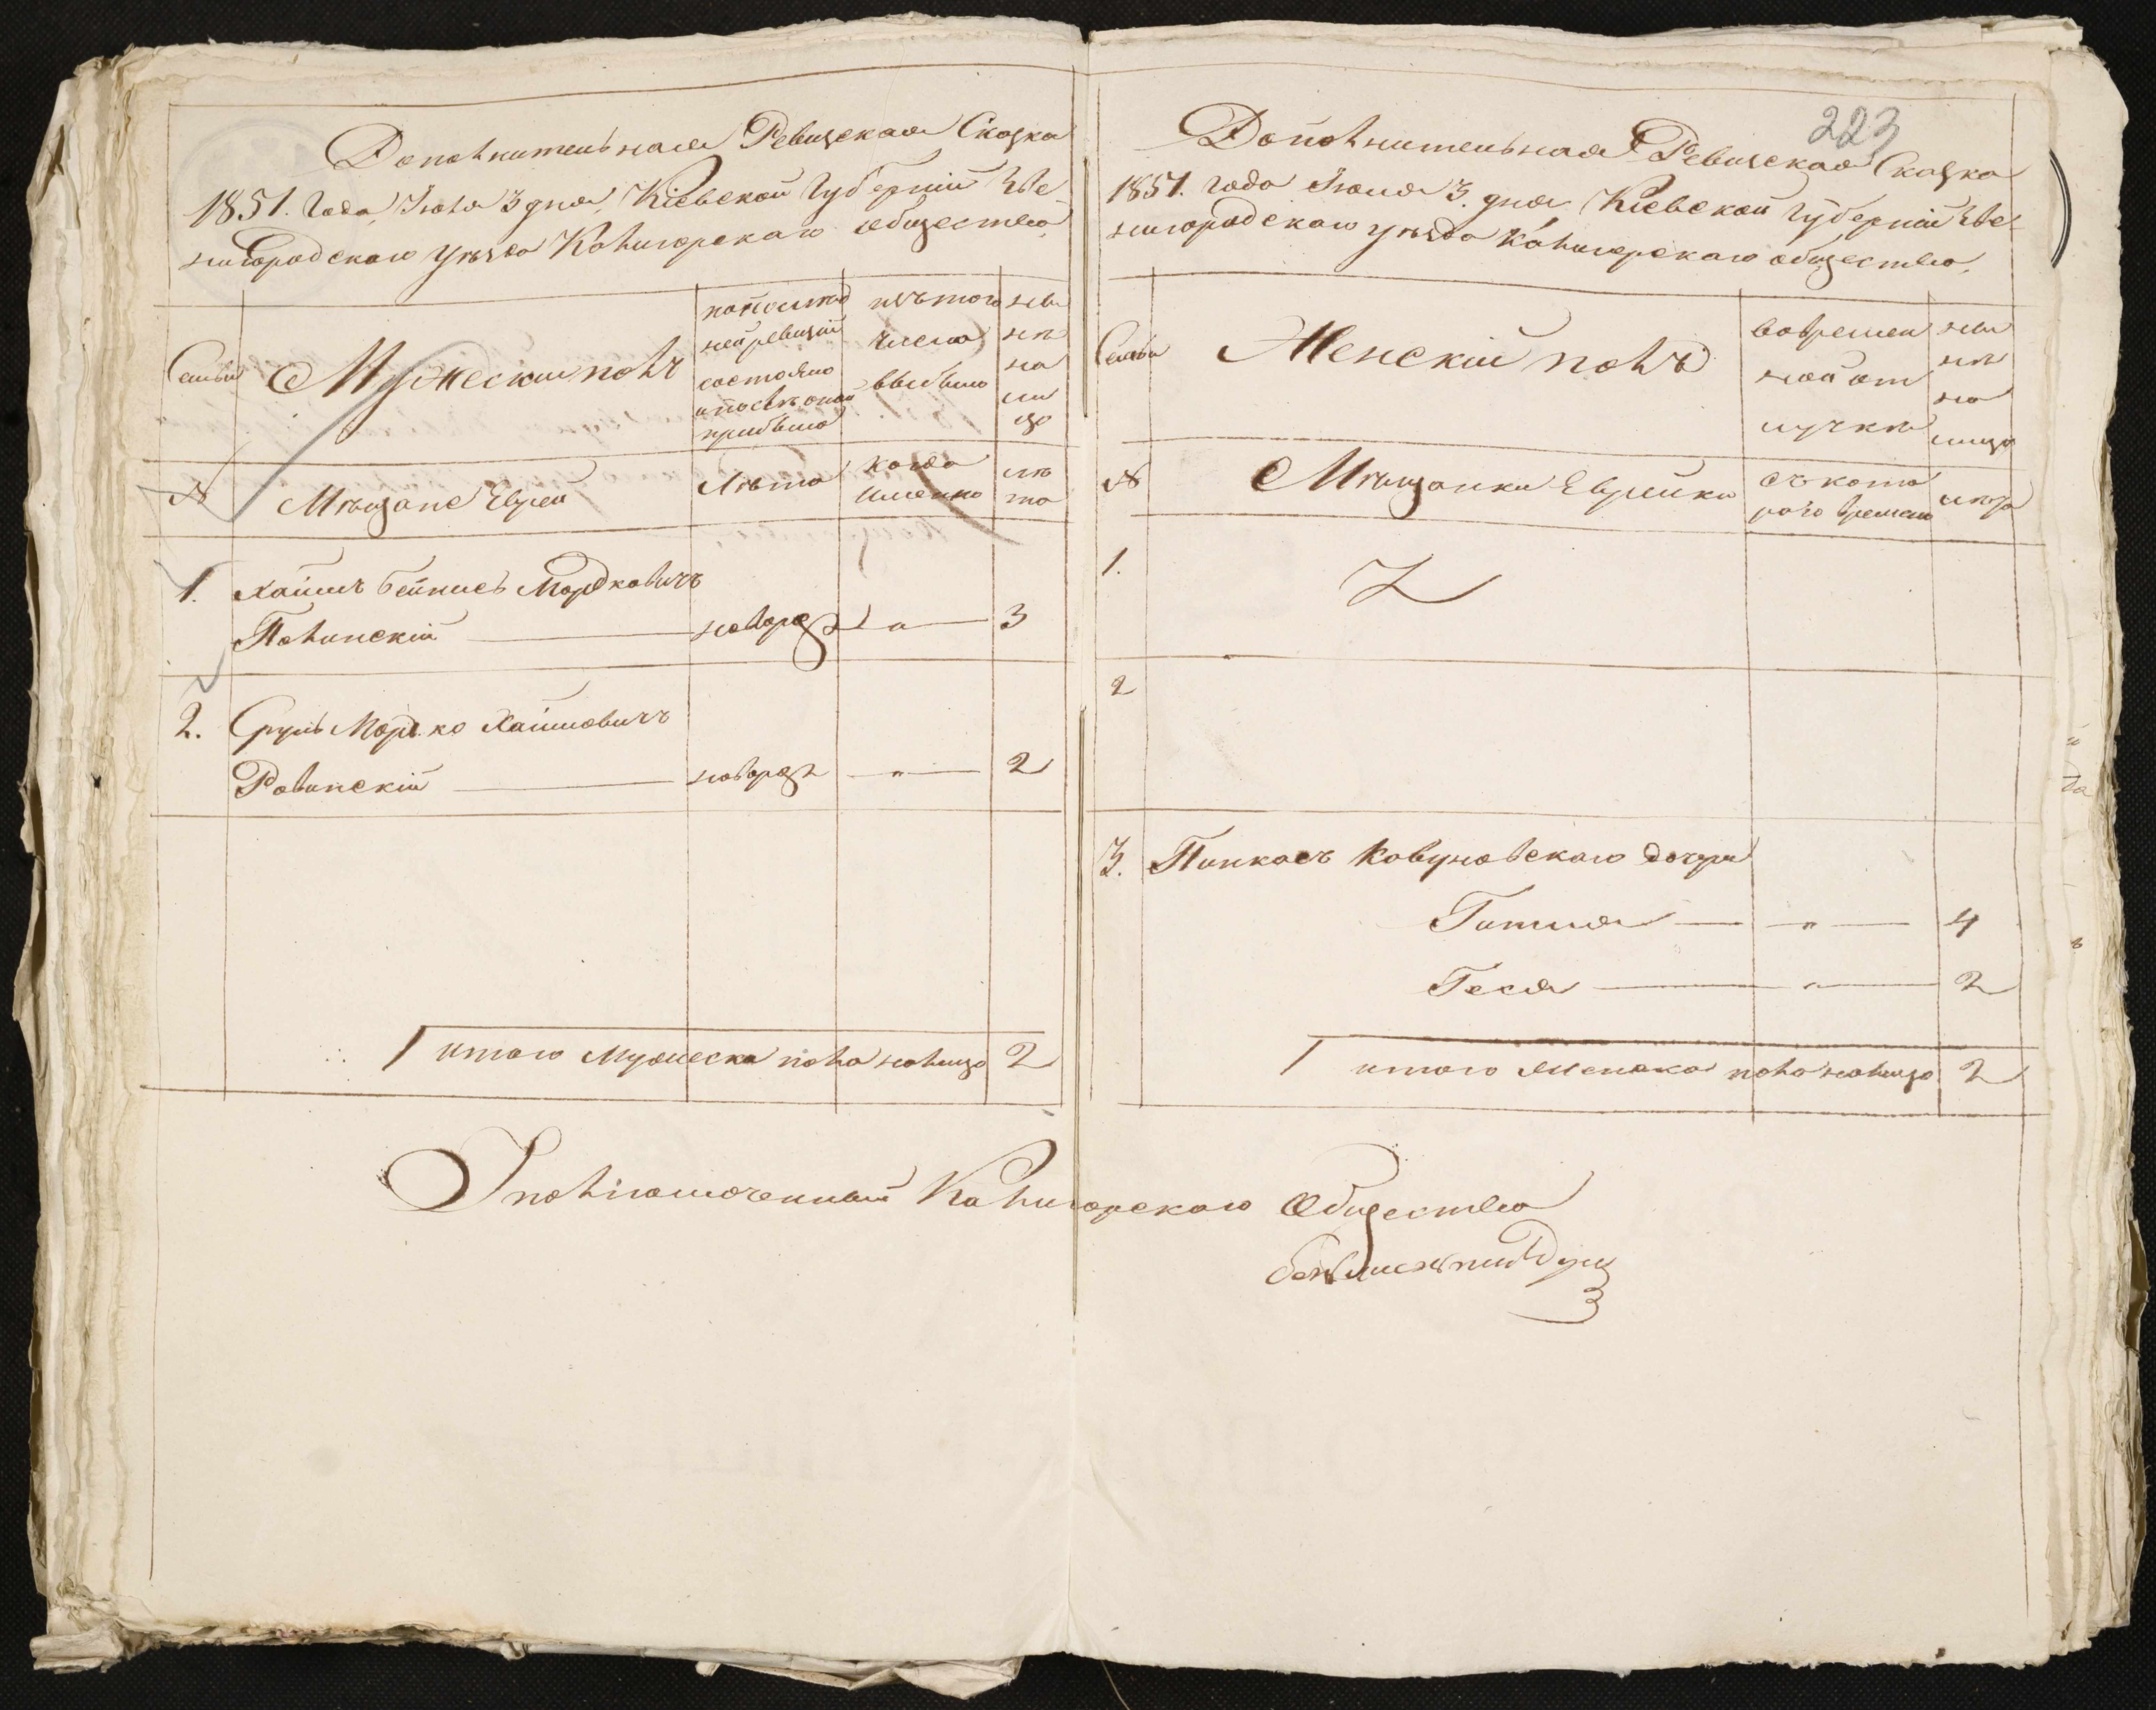 223
Дополнительная Ревизская Сказка
1851. года, Июля 3 дня, Кіевской Губерніи Зве-
нигородскаго уѣзда Калигорскаго общества,
Семьи
Мужескій полъ
по послѣд
ней ревизіи
состояло
и послѣ оной
прибыло
изъ того
числа
выбыло
ны
нѣ
на
ли
цо
№
Мѣщане Евреи
Лѣта
когда
именно
лѣ
та
1. Хаимъ Бейнисъ Мордковичъ
Полинскій — новорож — " — 3
2. Сруль Мордко Хаимовичъ
Ровинскій — новорож — " — 2
итого мужеска пола налицо 2
Дополнительная Ревизская Сказка
1851. года Июля 3. дня, Кіевской Губерніи Зве-
нигородскаго уѣзда Калигорскаго общества,
Семьи
Женскій полъ
во времен
ной от
лучкѣ
ны
нѣ
на
лицо
№
Мѣщанки Еврейки
съ кото
раго времени
лѣта
1.
2
3. Пинкасъ Ковуновскаго дочери
Гитля — " — 4
Геся — " — 2
итого Женска пола налицо 2
Уполномоченный Калигорскаго Общества